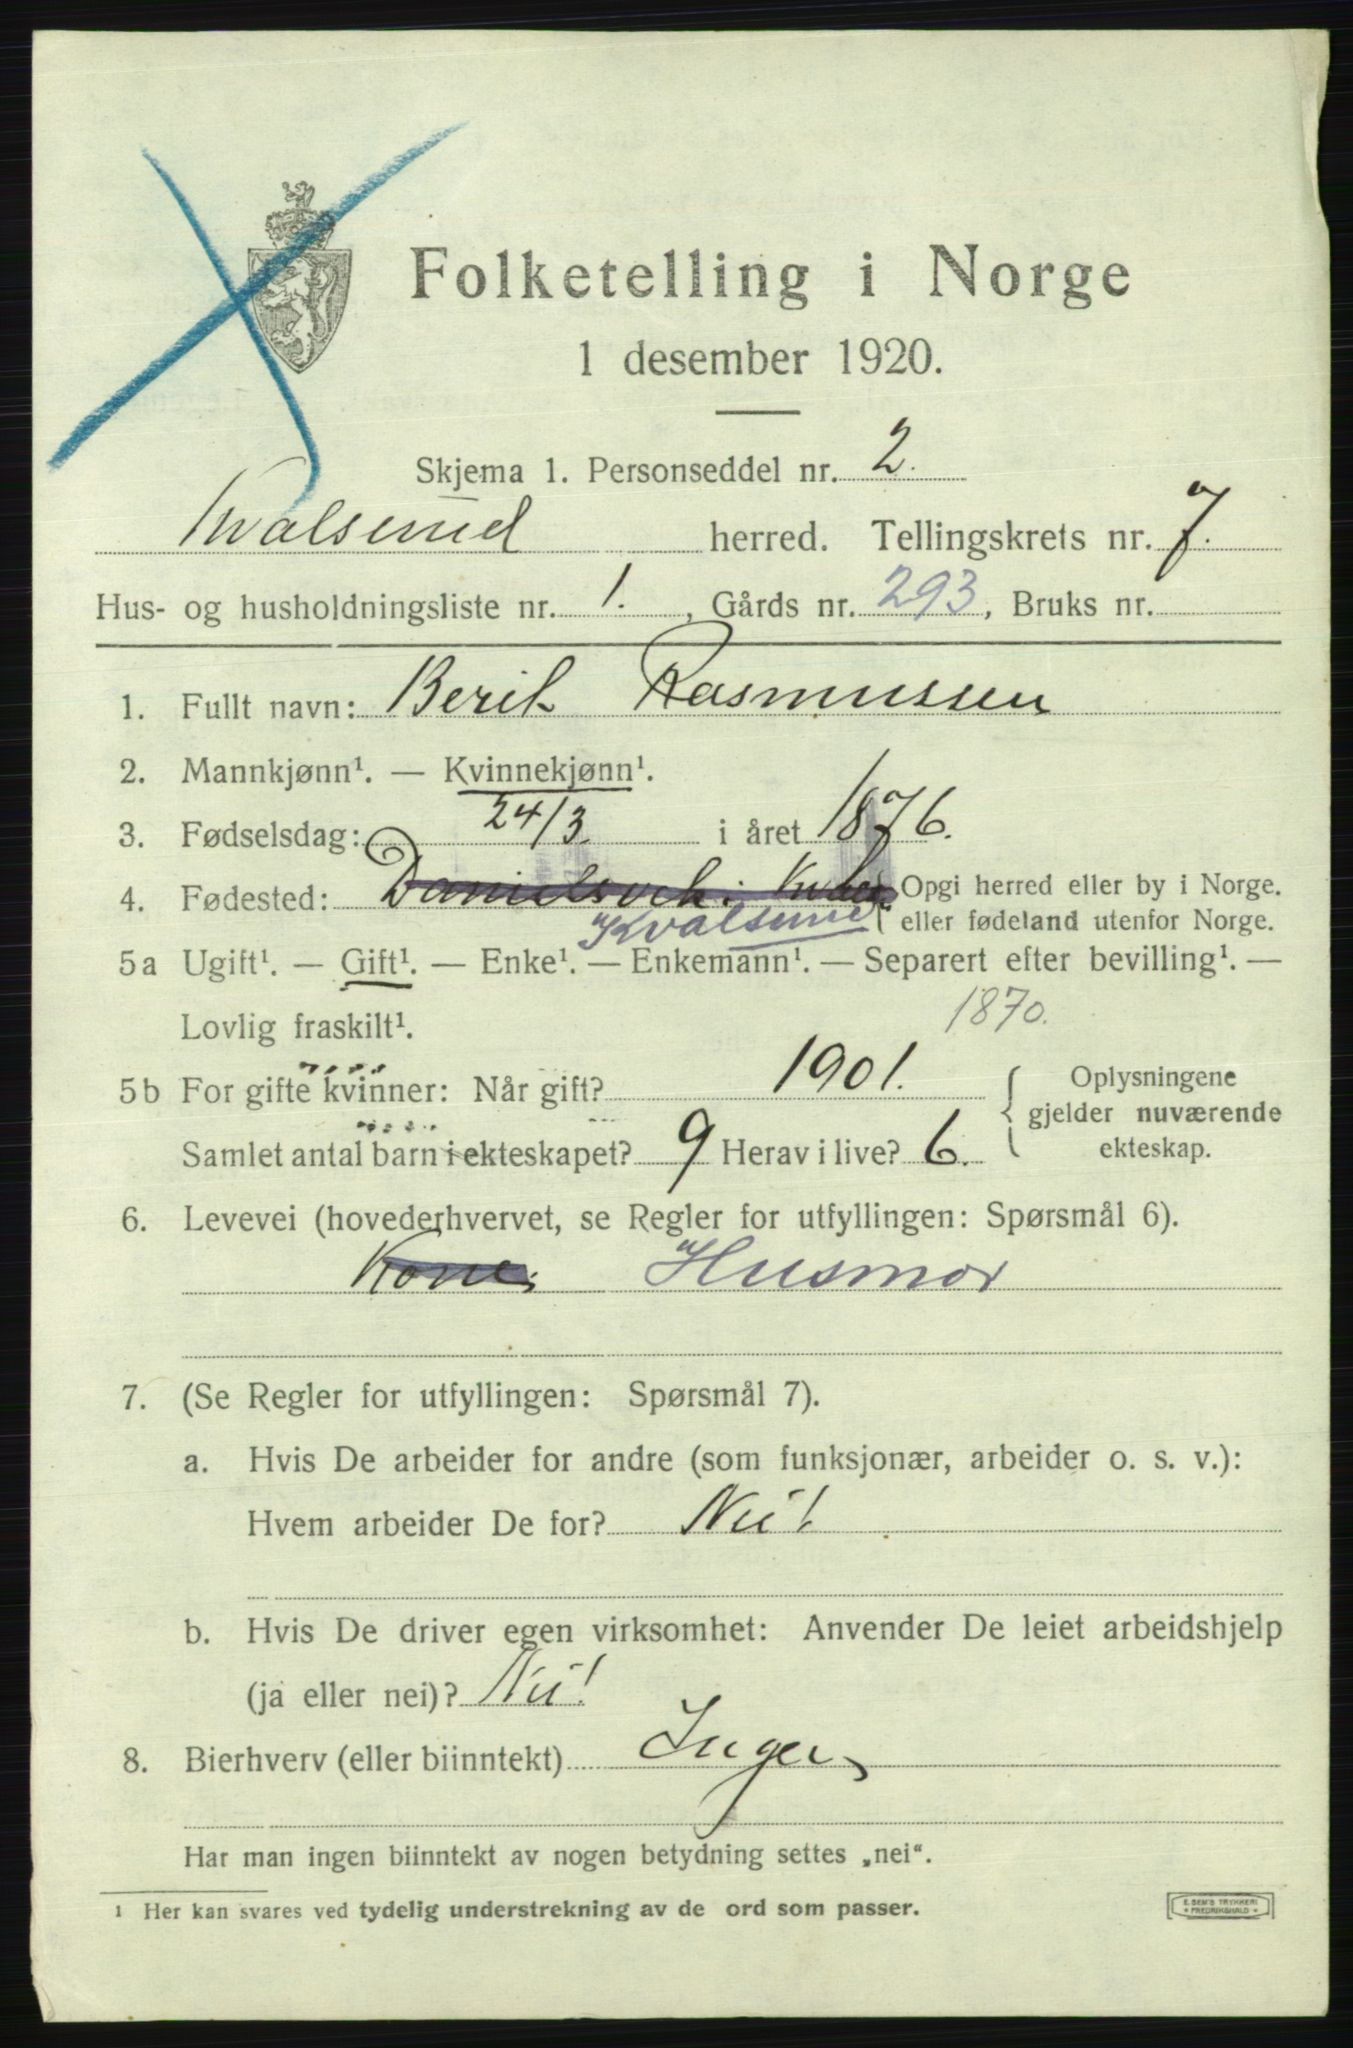 Folketelling i Norge
1 desember 1920.
Skjema 1. Personseddel nr. 2.
Kvalsund herred. Tellingskrets nr. 7.
Hus- og husholdningsliste nr. 1., Gårds nr. 293, Bruks nr.
1. Fullt navn: Berit Rasmussen
2. Mannkjønn¹. — Kvinnekjønn¹.
3. Fødselsdag: 24/3. i året 1876.
4. Fødested: Opgi herred eller by i Norge.
Kvalsund eller fødeland utenfor Norge.
5a Ugift¹. — Gift¹. — Enke¹. — Enkemann¹. — Separert efter bevilling¹. —
Lovlig fraskilt¹. 1870.
5b For gifte kvinner: Når gift? 1901. Oplysningene
gjelder nuværende
Samlet antal barn i ekteskapet? 9 Herav i live? 6. ekteskap.
6. Levevei (hovederhvervet, se Regler for utfyllingen: Spørsmål 6).
Kone. Husmor
7. (Se Regler for utfyllingen: Spørsmål 7).
a. Hvis De arbeider for andre (som funksjonær, arbeider o. s. v.):
Hvem arbeider De for? Nei!
b. Hvis De driver egen virksomhet: Anvender De leiet arbeidshjelp
(ja eller nei)? Nei!
8. Bierhverv (eller biinntekt) Ingen
Har man ingen biinntekt av nogen betydning settes „nei“.
¹ Her kan svares ved tydelig understrekning av de ord som passer.
E. SEM'S TRYKKERI
* FREDRIKSHALD *